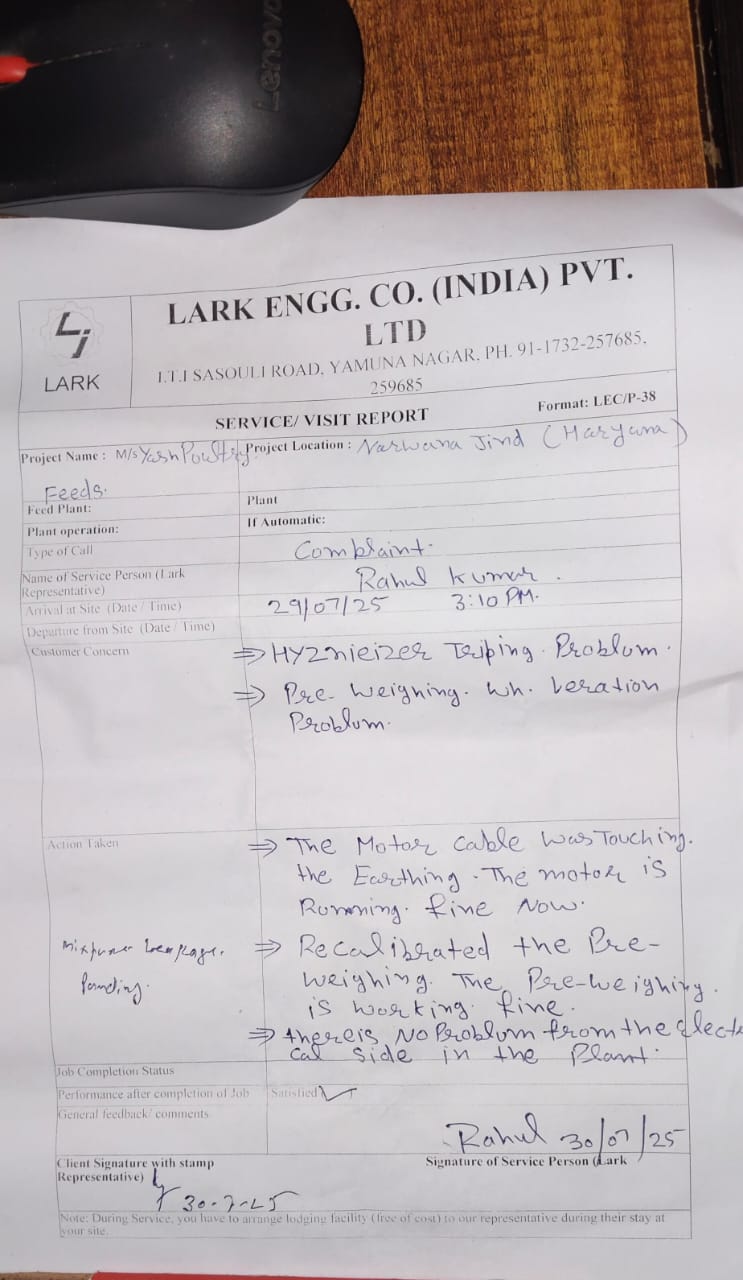 Lenovo
LARK
LARK ENGG. CO. (INDIA) PVT.
LTD
I.T.I SASOULI ROAD, YAMUNA NAGAR, PH. 91-1732-257685,
259685
SERVICE/ VISIT REPORT
Format: LEC/P-38
Project Name : M/s Yash Poultry
Feeds.
Project Location : Narwana Jind (Haryana)
Feed Plant:
Plant
Plant operation:
If Automatic:
Type of Call
Complaint.
Name of Service Person (Lark
Representative)
Rahul Kumar.
Arrival at Site (Date / Time)
29/07/25 3:10 PM.
Departure from Site (Date / Time)
Customer Concern
⇒ HYZnieizer Triping. Problum.
⇒ Pre-Weighing. Wh. beration
Problum.
Action Taken
⇒ The Motor cable was Touching.
the Earthing. The motor is
Running. fine Now.
⇒ Recalibrated the Pre-
Weighing. The Pre-weighing.
is working. fine.
⇒ thereis No Problum from the Electri
cal side in the Plant.
Leakage.
Panding.
Job Completion Status
Performance after completion of Job
Satisfied ✓
General feedback/ comments
Rahul 30/07/25
Client Signature with stamp
Representative)
Signature of Service Person (Lark
30-7-25
Note: During Service, you have to arrange lodging facility (free of cost) to our representative during their stay at
your site.